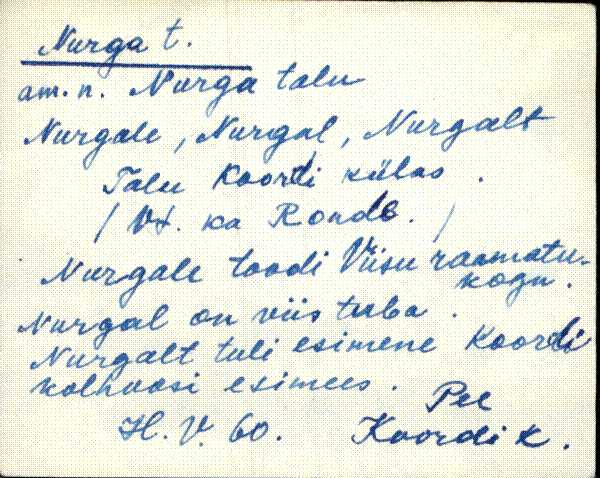 Nurga t.
am. n. Nurga talu
Nurgale, Nurgal, Nurgalt
Talu Koordi külas.
/ Vt. ka Roode. /
Nurgale toodi Viisu raamatu-
kogu.
Nurgal on viis tuba.
Nurgalt tuli esimene Koordi
kolhoosi esimees.
Pee
H. V. 60. Koordi k.